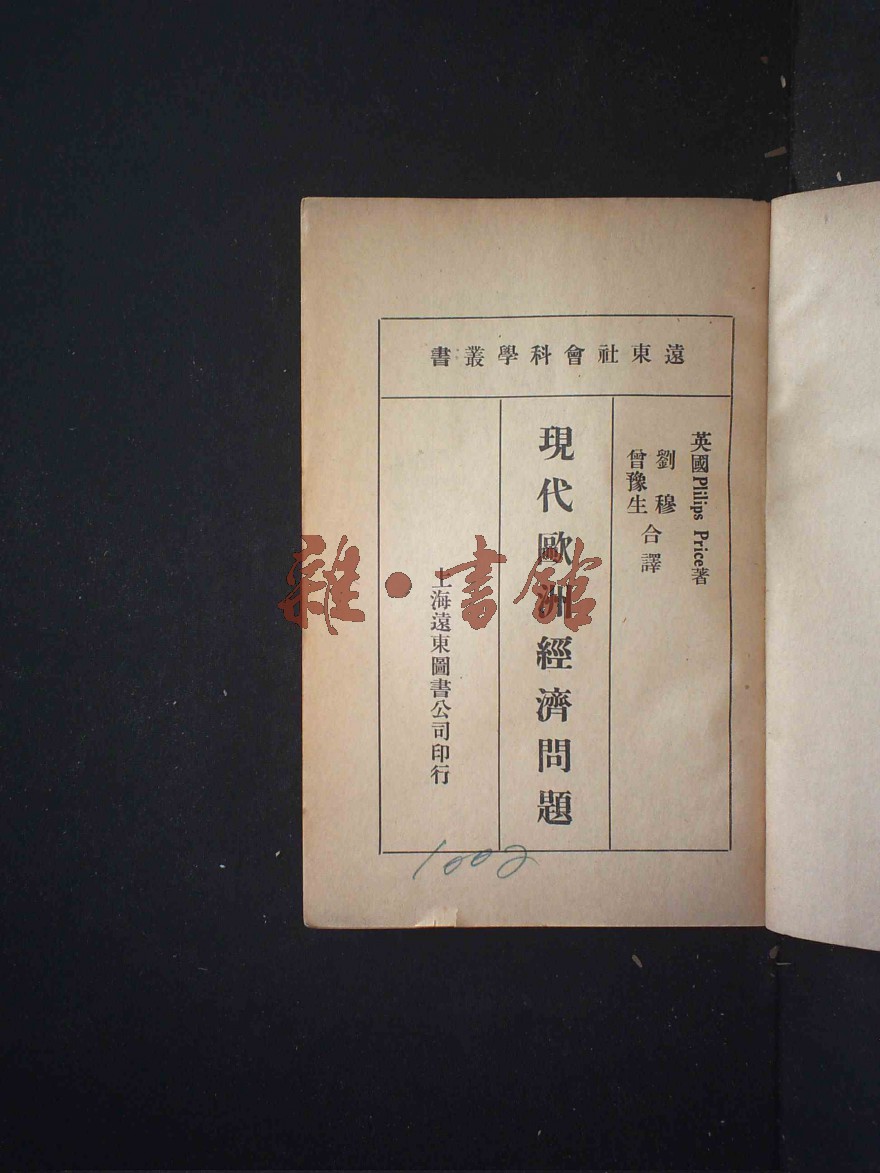 遠東社會科學叢書
英國Plilips Price著
劉穆
曾豫生
合譯
現代歐洲經濟問題
上海遠東圖書公司印行
1002
雜·書館